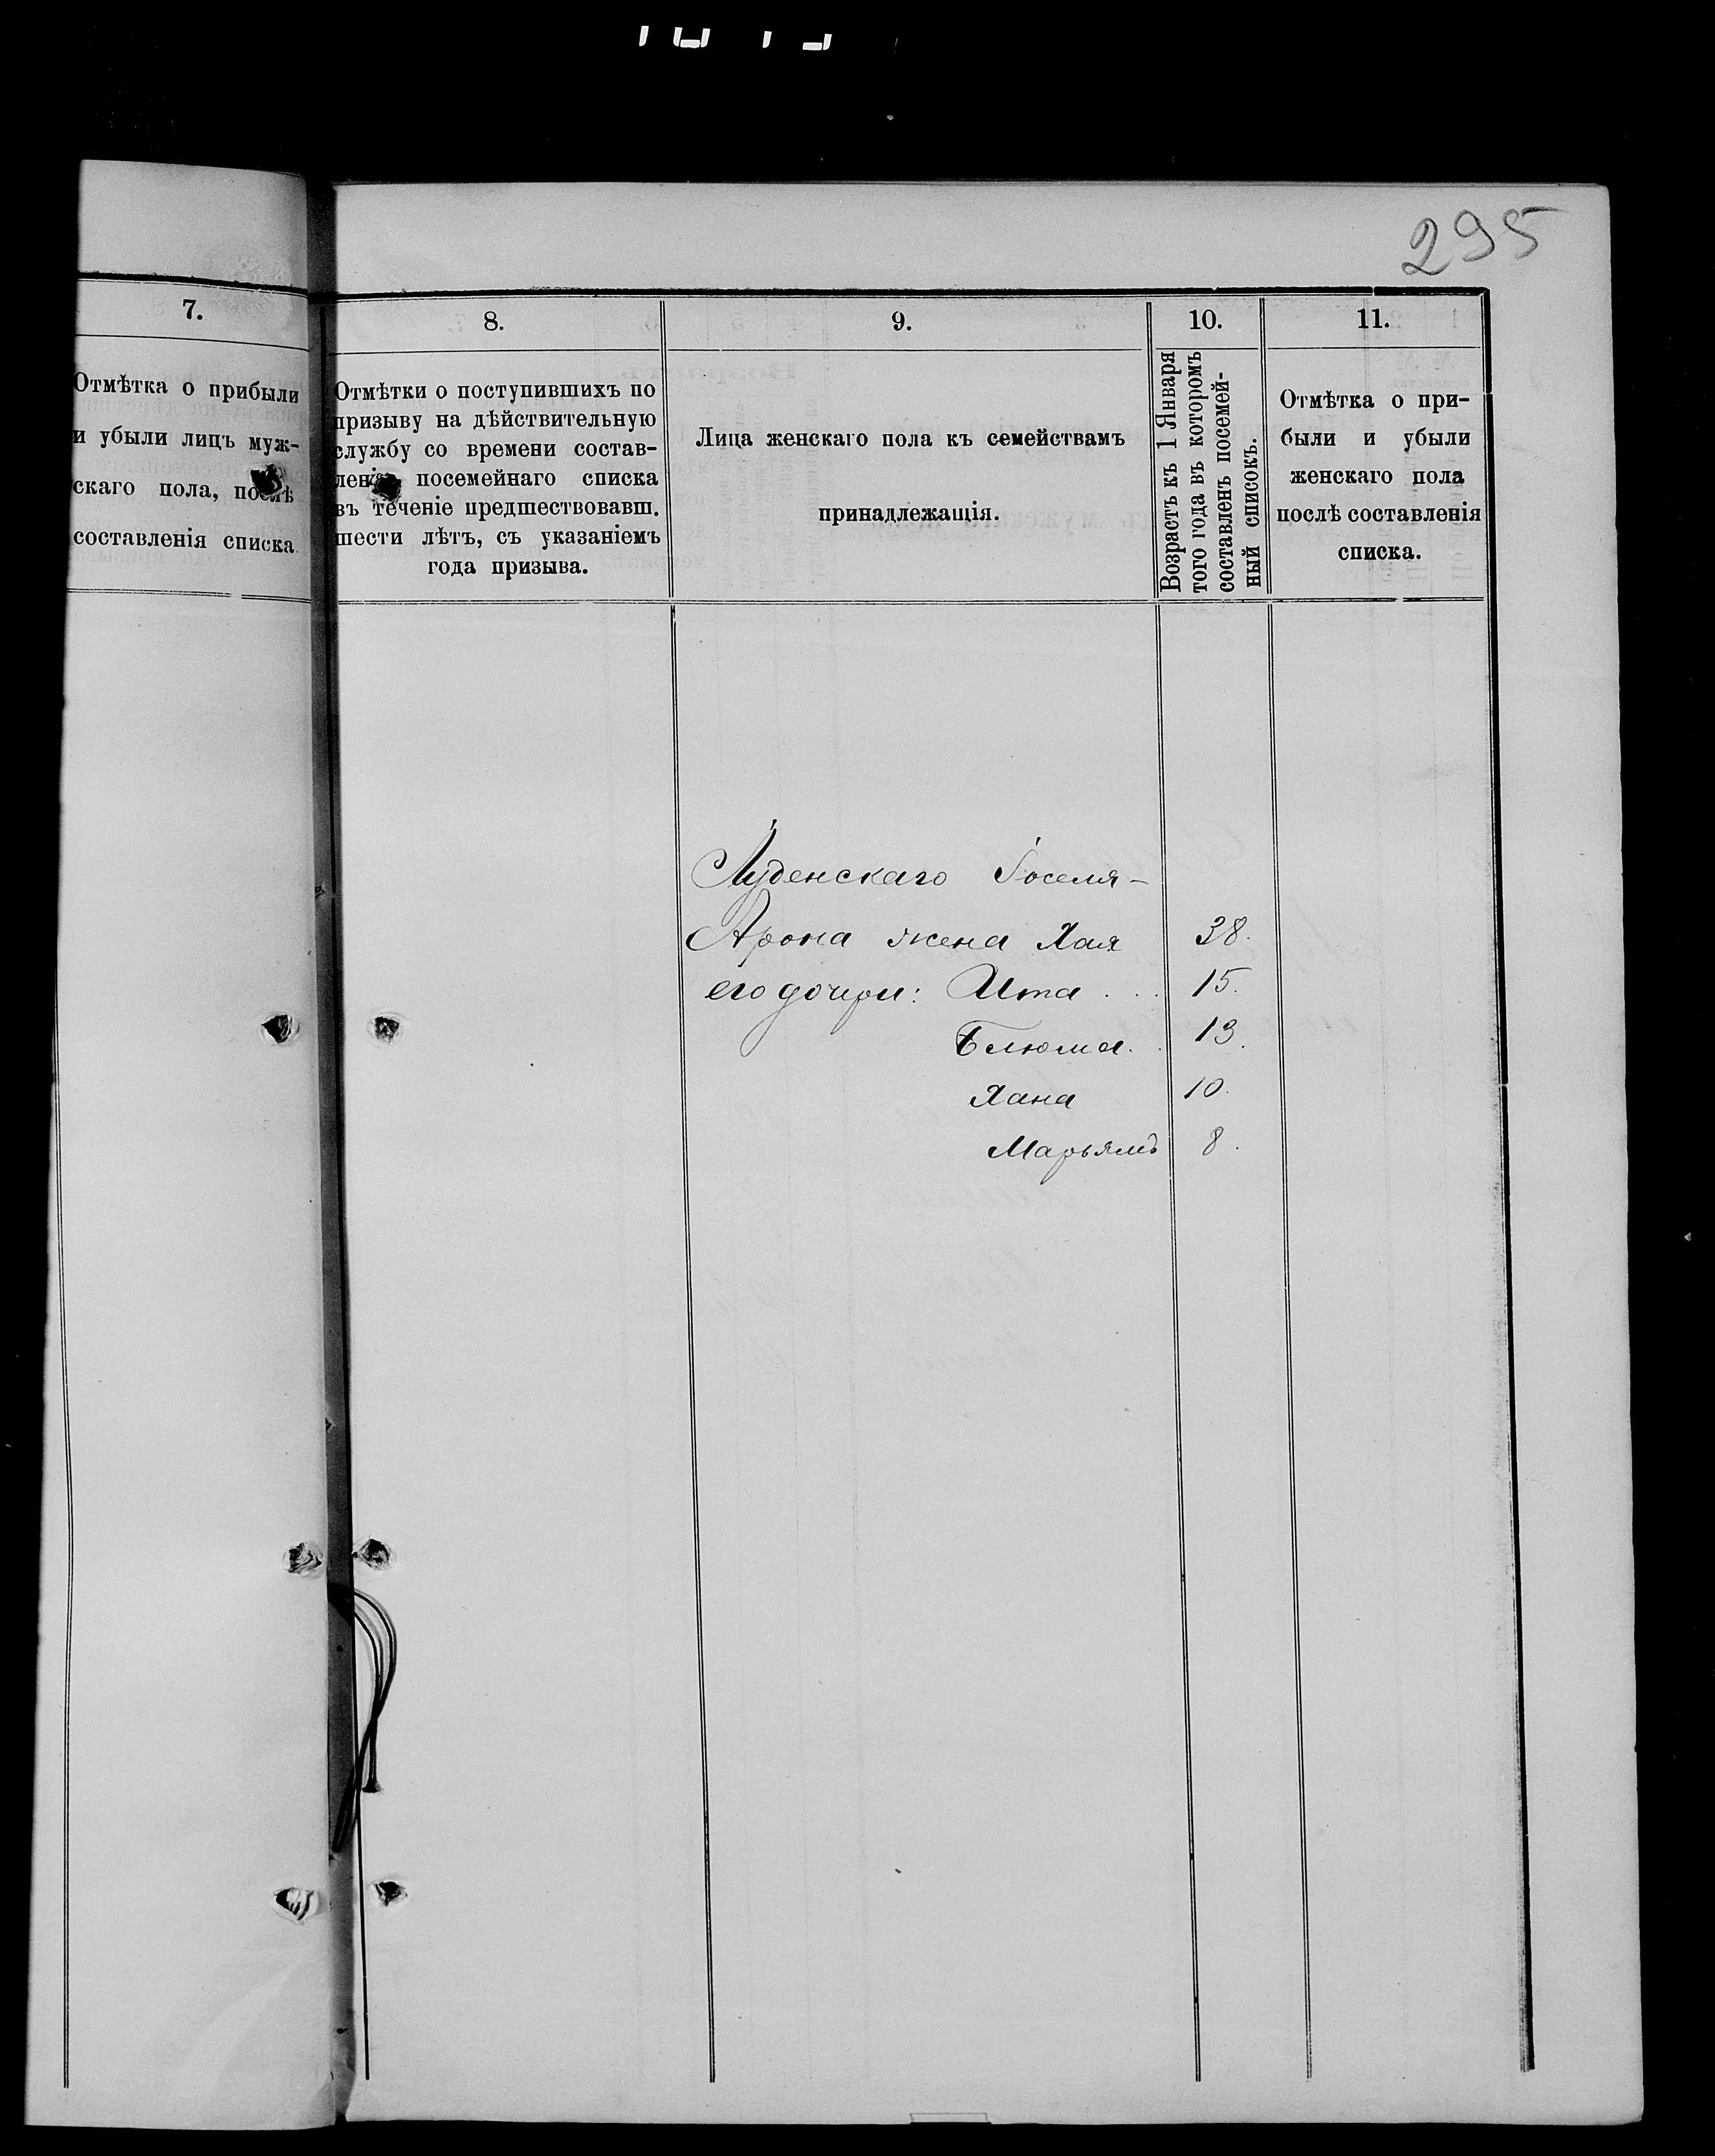 295
7.
Отмѣтка о прибыли
и убыли лицъ муж-
скаго пола, послѣ
составленія списка
8.
Отмѣтки о поступившихъ по
призыву на дѣйствительную
службу со времени состав-
ленія посемейнаго списка
въ теченіе предшествовавш.
шести лѣтъ, съ указаніемъ
года призыва.
9.
Лица женскаго пола къ семействамъ
принадлежащія.
10.
Возрастъ къ 1 Января
того года въ которомъ
составленъ посемей-
ный списокъ.
11.
Отмѣтка о при-
были и убыли
женскаго пола
послѣ составленія
списка.
Луденскаго Іоселя-
Арона жена Хая 38.
его дочери: Ита . . . 15.
Блюма . . 13.
Хана 10.
Марьямъ 8.